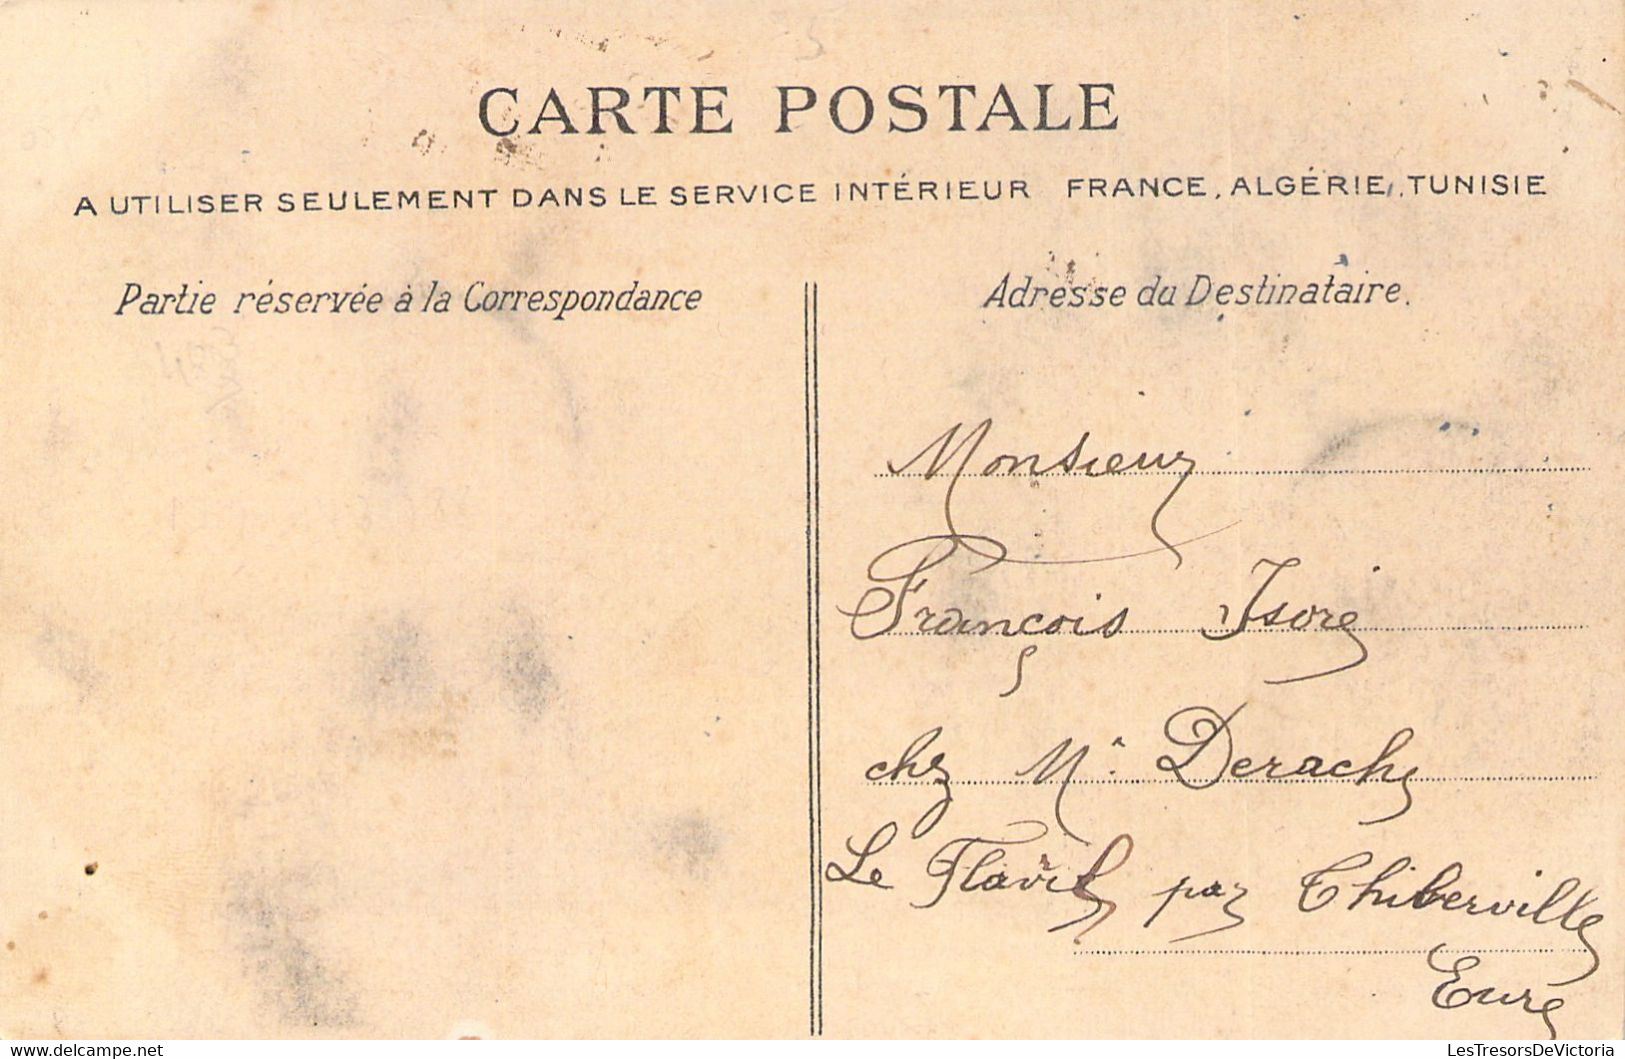 CARTE POSTALE
A UTILISER SEULEMENT DANS LE SERVICE INTÉRIEUR FRANCE, ALGÉRIE, TUNISIE
Partie réservée à la Correspondance
Adresse du Destinataire.
Monsieur
François Isore
chez Mr Derache
Le par Thiberville
Eure
www.delcampe.net
LesTresorsDeVictoria